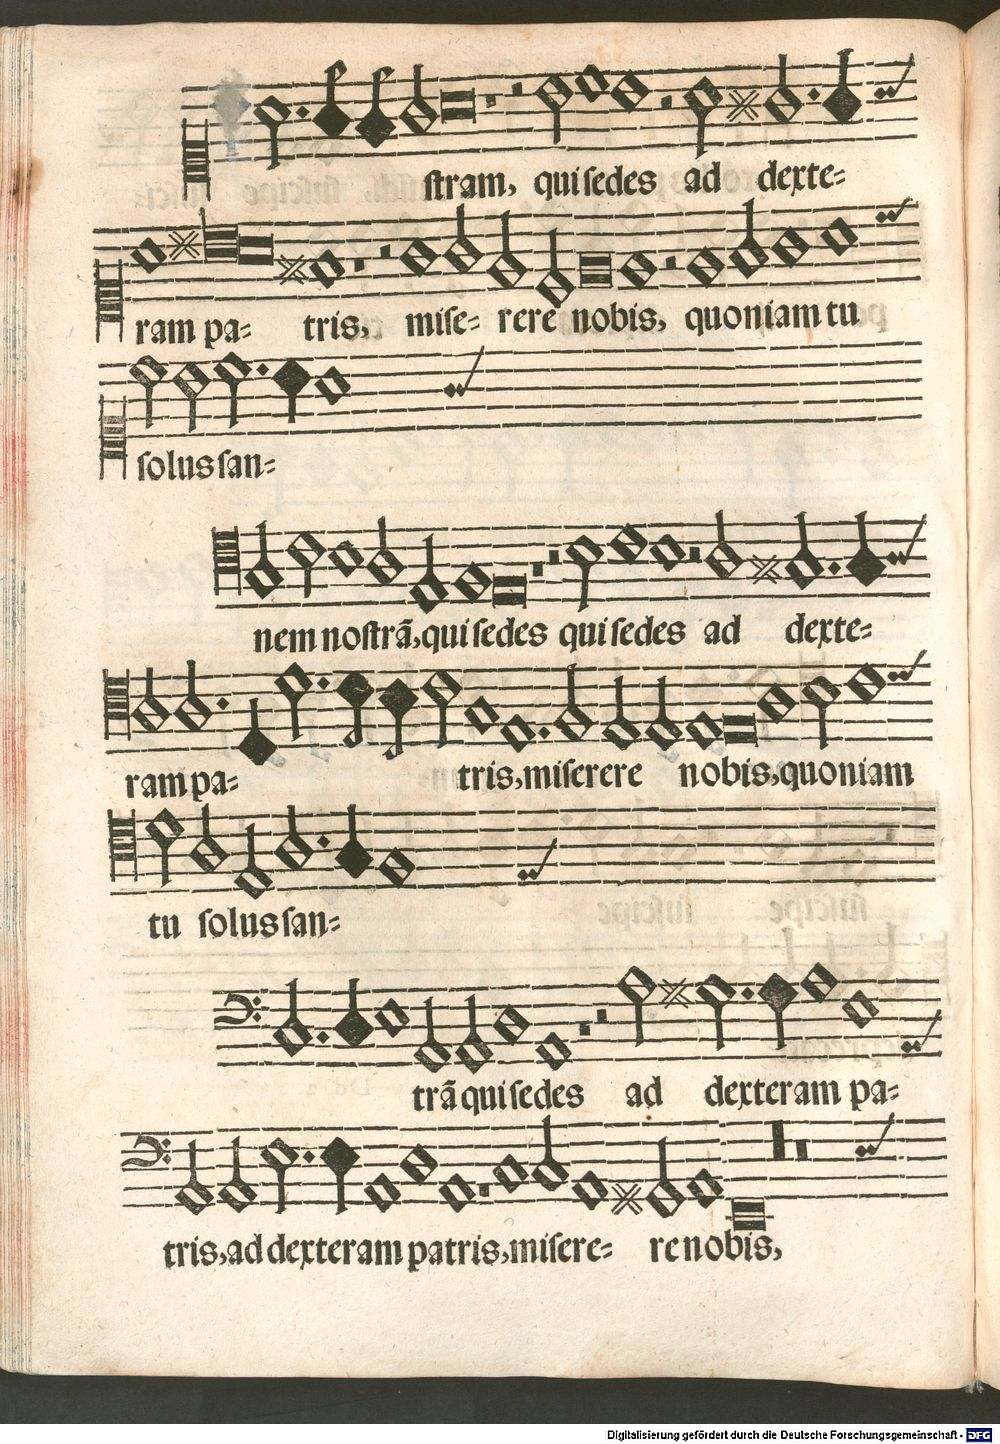 ſtram, qui ſedes ad dexte=
ram pa= tris, miſe= rere nobis, quoniam tu
ſolus ſan=
nem noſtrã, qui ſedes qui ſedes ad dexte=
ram pa= tris, miſerere nobis, quoniam
tu ſolus ſan=
trã qui ſedes ad dexteram pa=
tris, ad dexteram patris, miſere= re nobis,
Digitalisierung gefördert durch die Deutsche Forschungsgemeinschaft - DFG